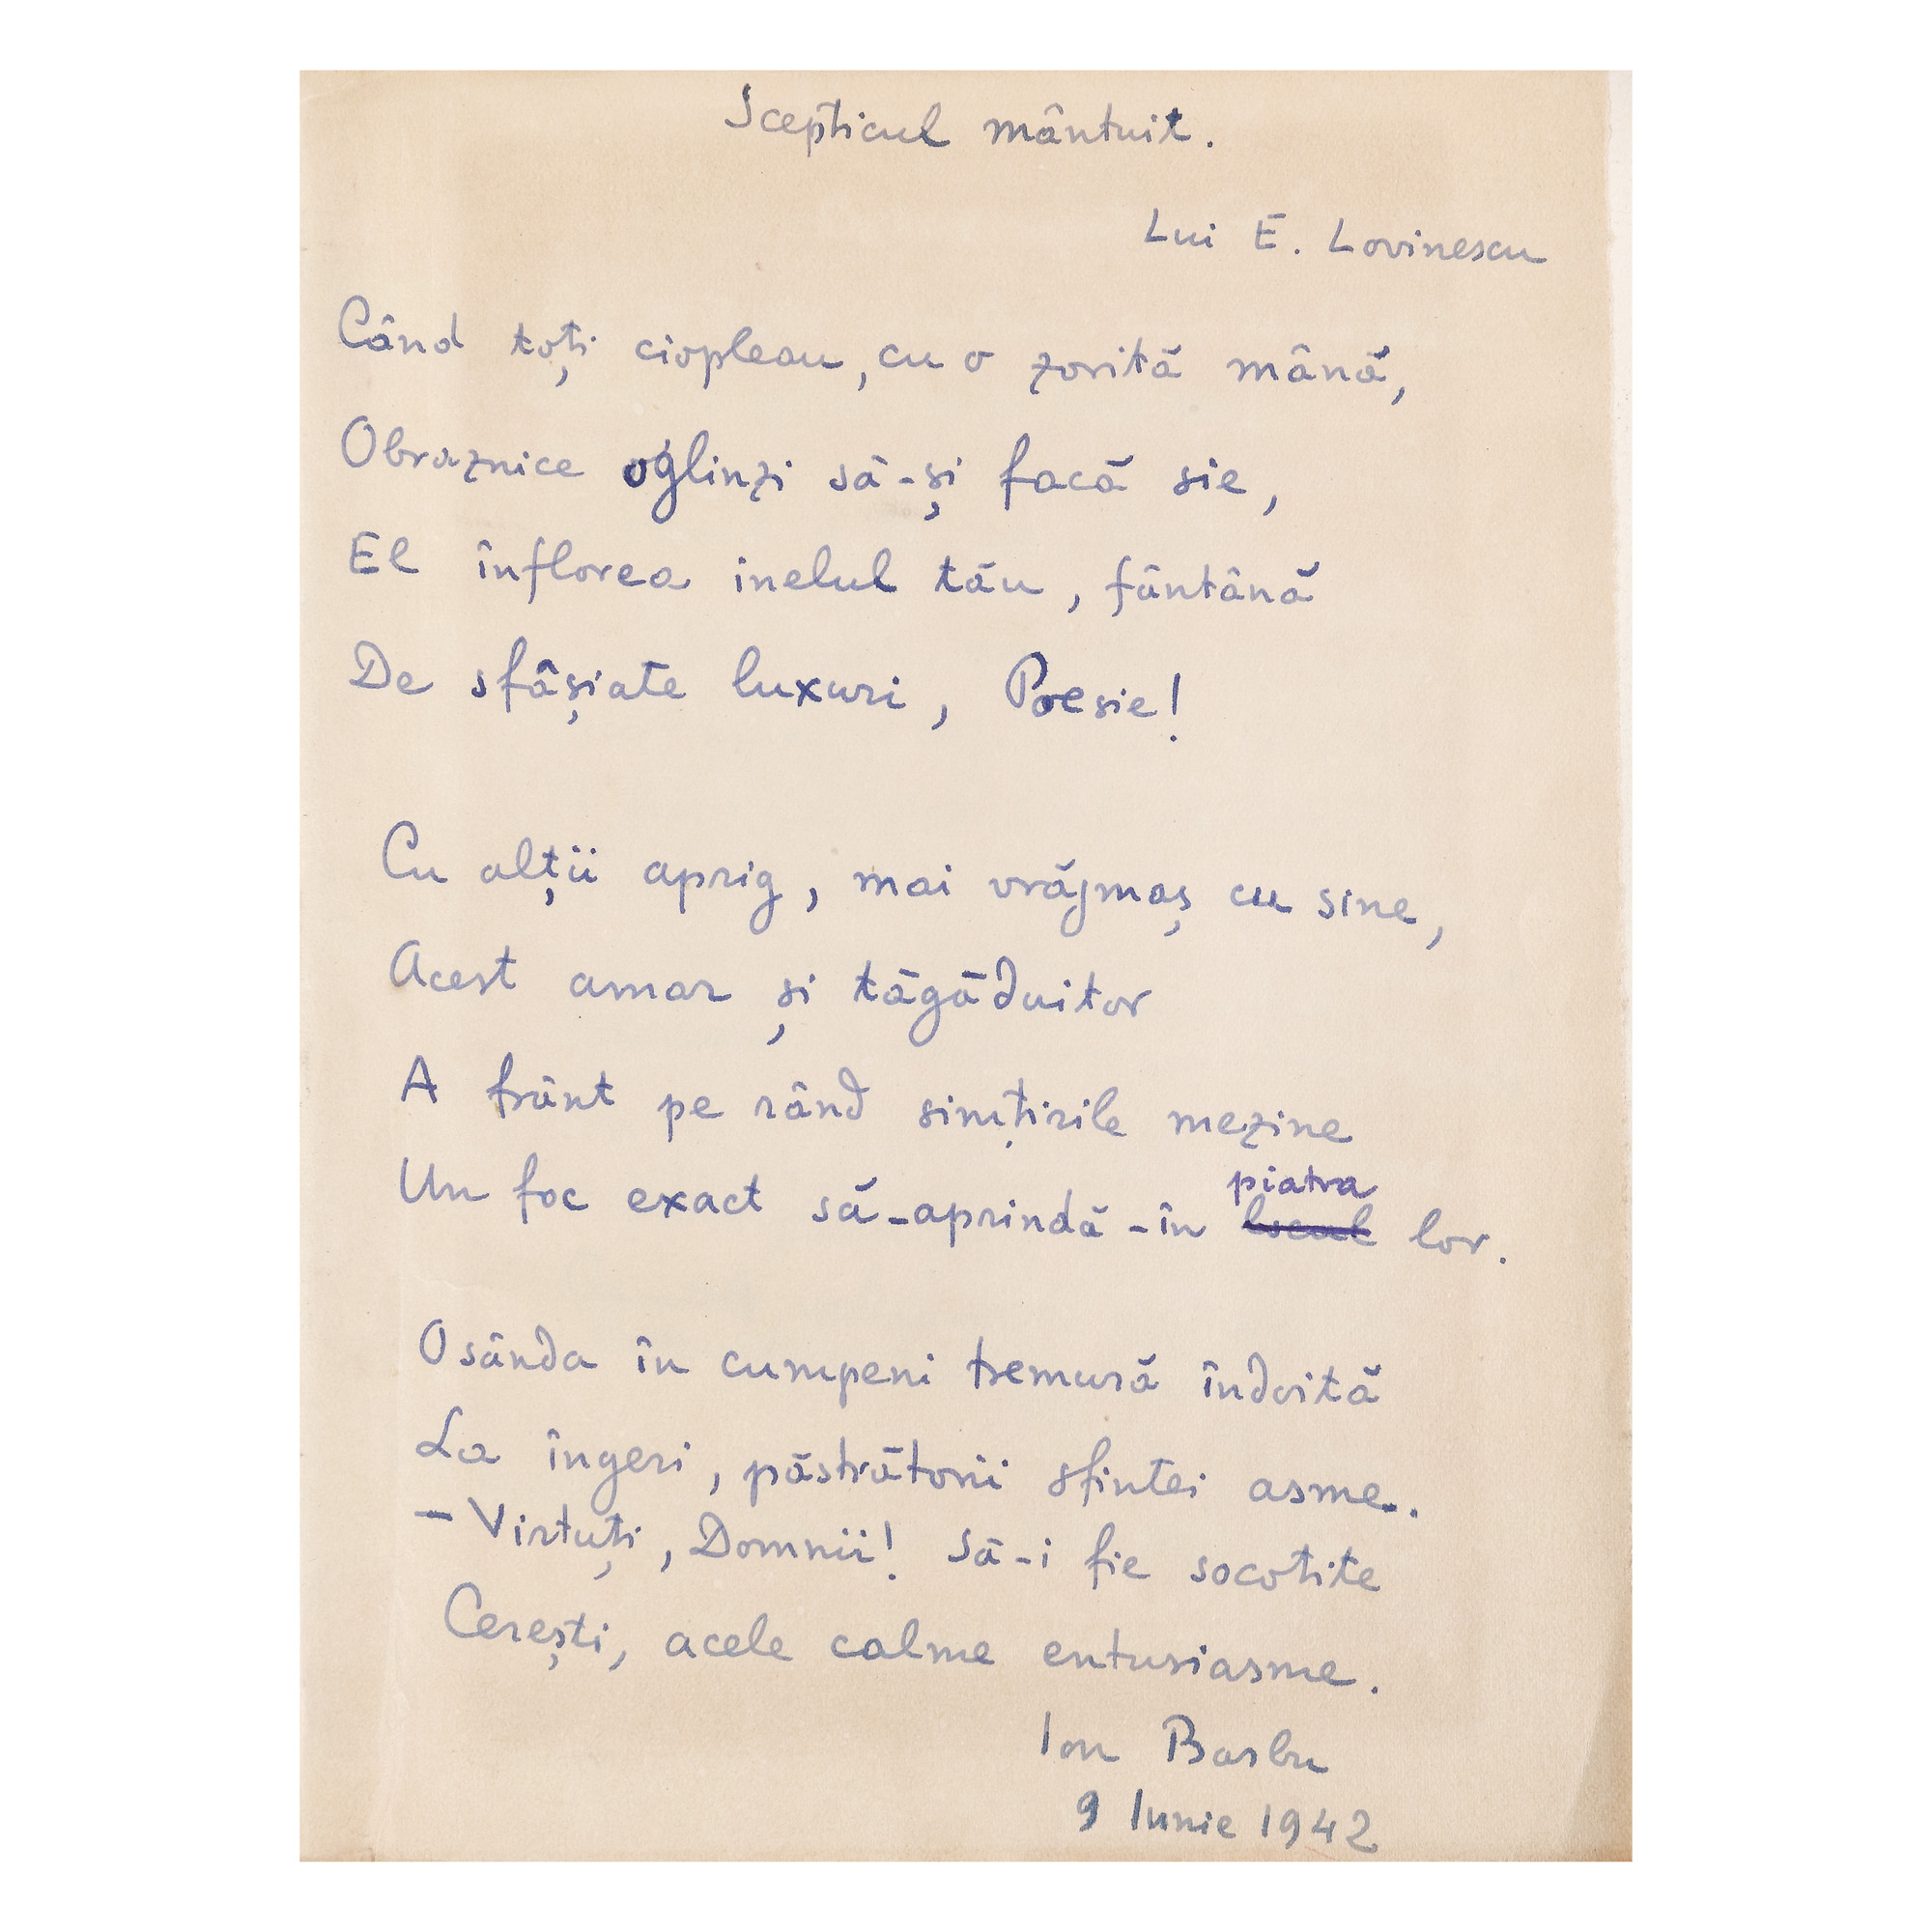 Scepticul mântuit.
Lui E. Lovinescu
Când toți ciopleau, cu o zorită mână,
Obraznice oglinzi să-și facă sie,
El înflorea inelul tău, fântână
De sfâșiate luxuri, Poesie!
Cu alții aprig, mai vrăjmaș cu sine,
Acest amar și tăgăduitor
A frânt pe rând simțirile mezine
piatra
Un foc exact să-aprindă-în locul lor.
Osânda în cumpeni tremură îndoită
La îngeri, păstrătorii sfintei asme.
- Virtuți, Domnii! Să-i fie socotite
Cerești, acele calme entusiasme.
Ion Barbu
9 Iunie 1942